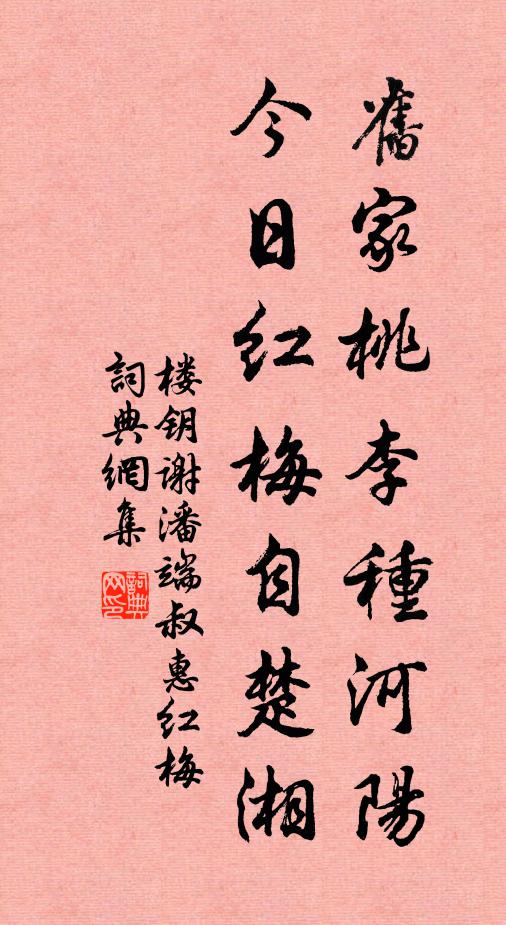 舊家桃李種河陽
今日红梅自楚湘
楼钥谢潘端叔惠红梅
詞典網集
詞典网印